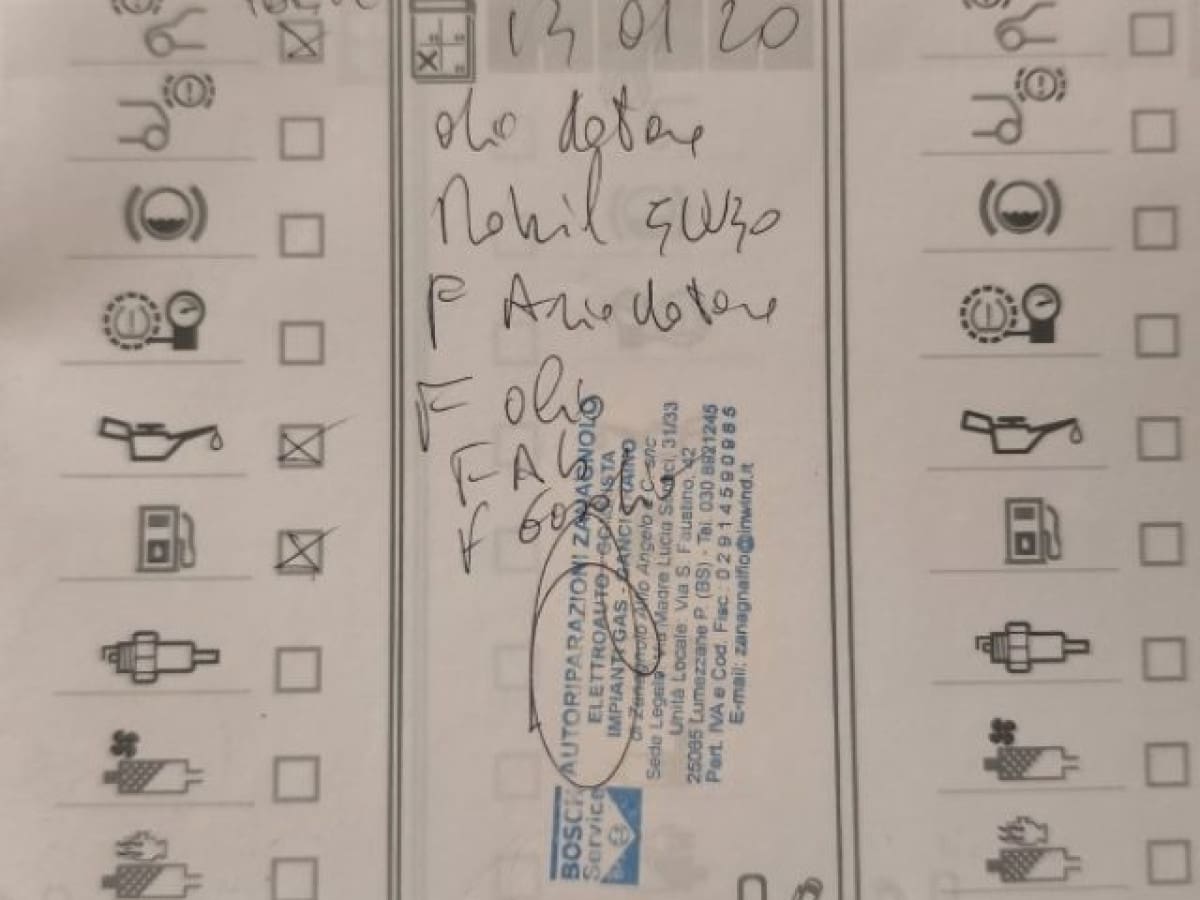 13 01 20
olio motore
Mobil 5W30
F Aria motore
F olio
F A
F
AUTORIPARAZIONI ZANAGNOLO
ELETTROAUTO - GOMMISTA
IMPIANTI GAS - GANCI TRAINO
di Zanagnolo Angelo & C. snc
Sede Legale: Via Madre Lucia 31/33
Unità Locale: Via S. Faustino, 42
25065 Lumezzane P. (BS) - Tel. 030 8921245
Part. IVA e Cod. Fisc.: 02914590985
E-mail: zanagnalfio@inwind.it
BOSCH
Service